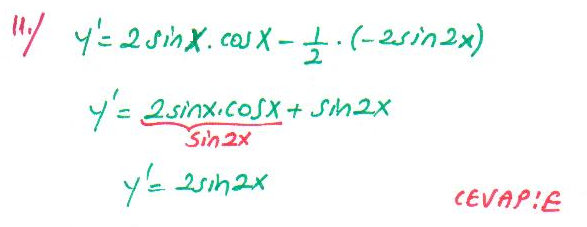 11./ y' = 2 sinx . cosx - 1/2 . (-2sin2x)
y' = 2sinx.cosx + sin2x
sin2x
y' = 2sin2x
CEVAP: E